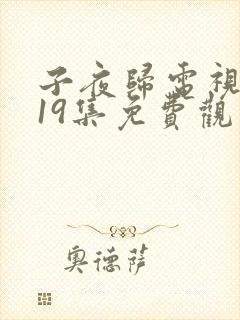 子夜歸電視
19集免費觀
奧德薩